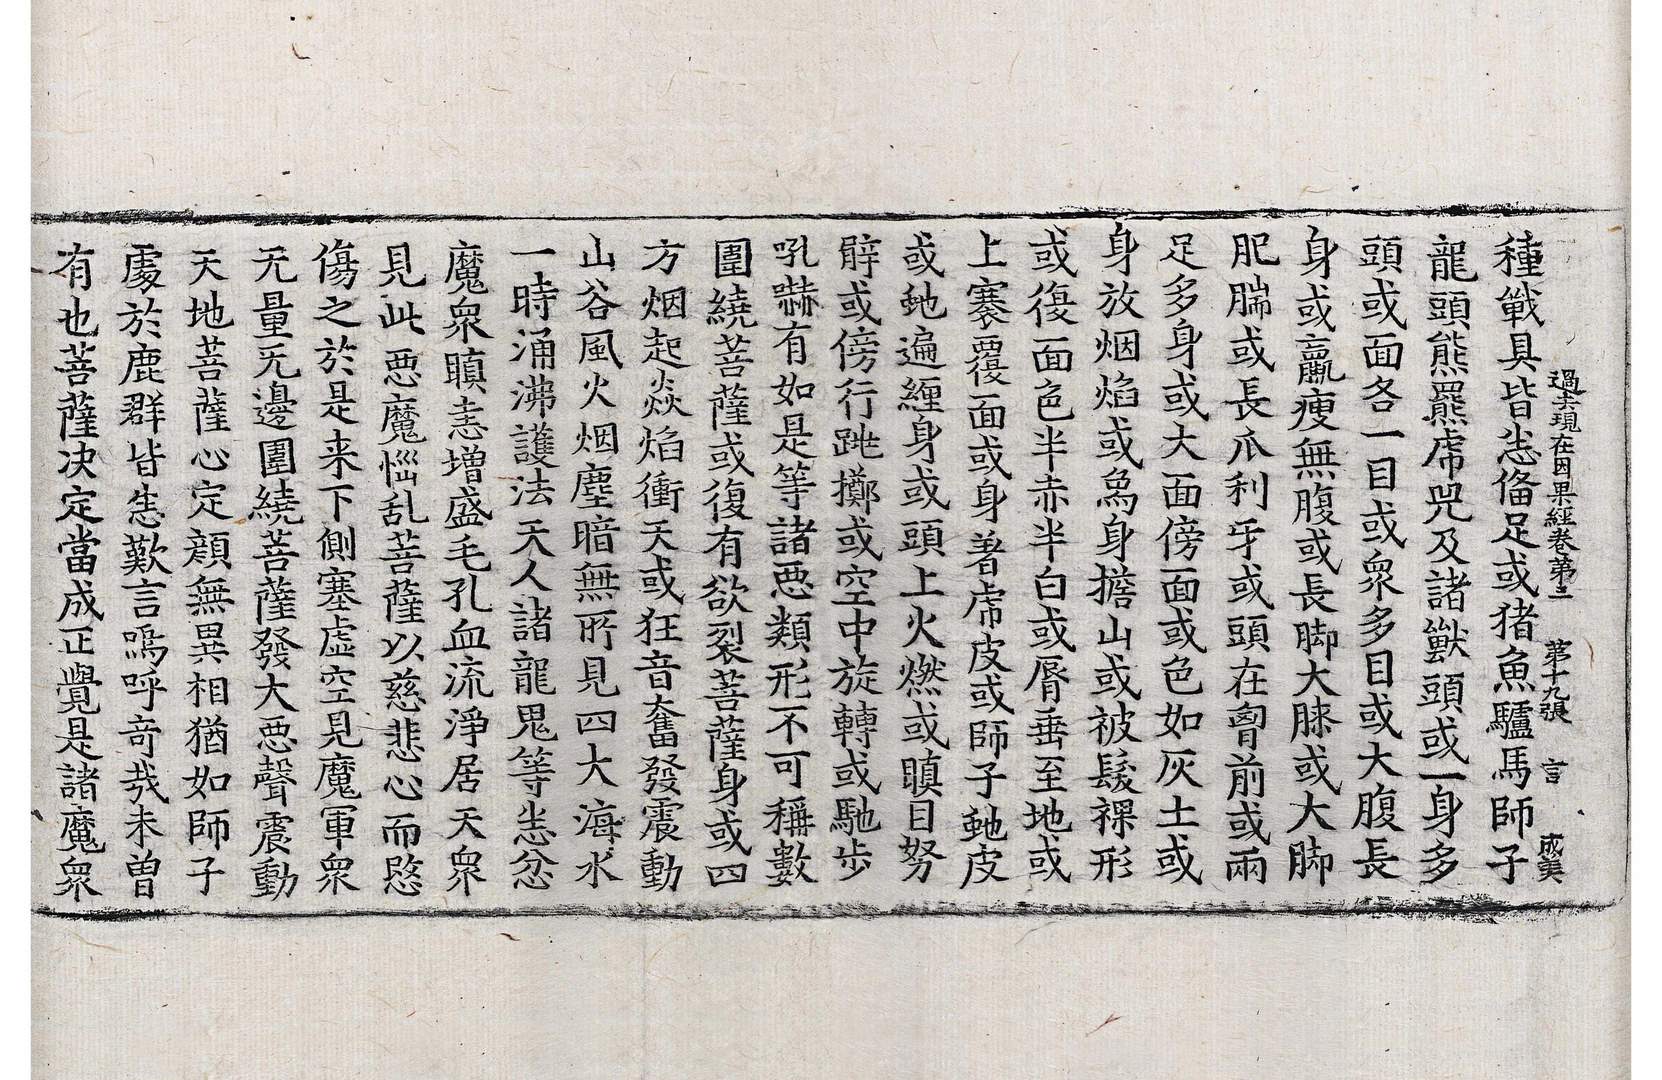 過去現在因果經卷第三 第十九張 言 成美
種戰具皆悉俻足或猪魚驢馬師子
龍頭熊羆虎兕及諸獸頭或一身多
頭或面各一目或衆多目或大腹長
身或羸瘦無腹或長脚大膝或大脚
肥腨或長爪利牙或頭在胷前或兩
足多身或大面傍面或色如灰土或
身放烟焰或烏身擔山或被髮裸形
或復面色半赤半白或脣垂至地或
上褰覆面或身著虎皮或師子虵皮
或虵遍纏身或頭上火燃或瞋目努
臂或傍行跳擲或空中旋轉或馳步
吼嚇有如是等諸惡類形不可稱數
圍繞菩薩或復有欲裂菩薩身或四
方烟起焱焰衝天或狂音奮發震動
山谷風火烟塵暗無所見四大海水
一時涌沸護法天人諸龍鬼等悉忿
魔衆瞋恚增盛毛孔血流淨居天衆
見此惡魔惱乱菩薩以慈悲心而愍
傷之於是来下側塞虛空見魔軍衆
无量无邊圍繞菩薩發大惡聲震動
天地菩薩心定顔無異相猶如師子
處於鹿群皆悉歎言嗚呼奇哉未曾
有也菩薩决定當成正覺是諸魔衆